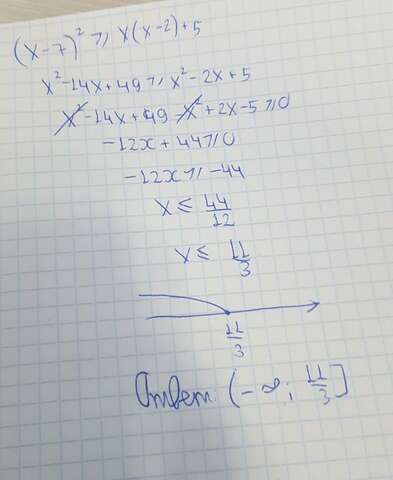 (x-7)² ⩾ x(x-2)+5
x²-14x+49 ⩾ x²-2x+5
x²-14x+49-x²+2x-5 ⩾ 0
-12x+44 ⩾ 0
-12x ⩾ -44
x ≤ 44/12
x ≤ 11/3
11/3
Ответ: (-∞; 11/3]